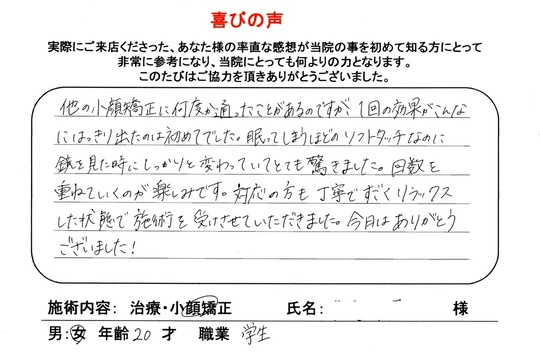 喜びの声
実際にご来店くださった、あなた様の率直な感想が当院の事を初めて知る方にとって
非常に参考になり、当院にとっても何よりの力となります。
このたびはご協力を頂きありがとうございました。
他の小顔矯正に何度か通ったことがあるのですが、1回の効果がこんな
にはっきり出たのは初めてでした。眠ってしまうほどのソフトタッチなのに
鏡を見た時にしっかりと変わっていてとても驚きました。回数を
重ねていくのが楽しみです。対応の方も丁寧ですごくリラックス
した状態で施術を受けさせていただきました。今日はありがとう
ございました!
施術内容: 治療・小顔矯正 氏名: 様
男:女 年齢20才 職業 学生